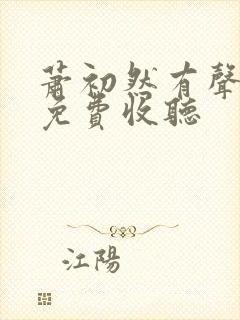 蕭初然有聲
免費收聽
江陽